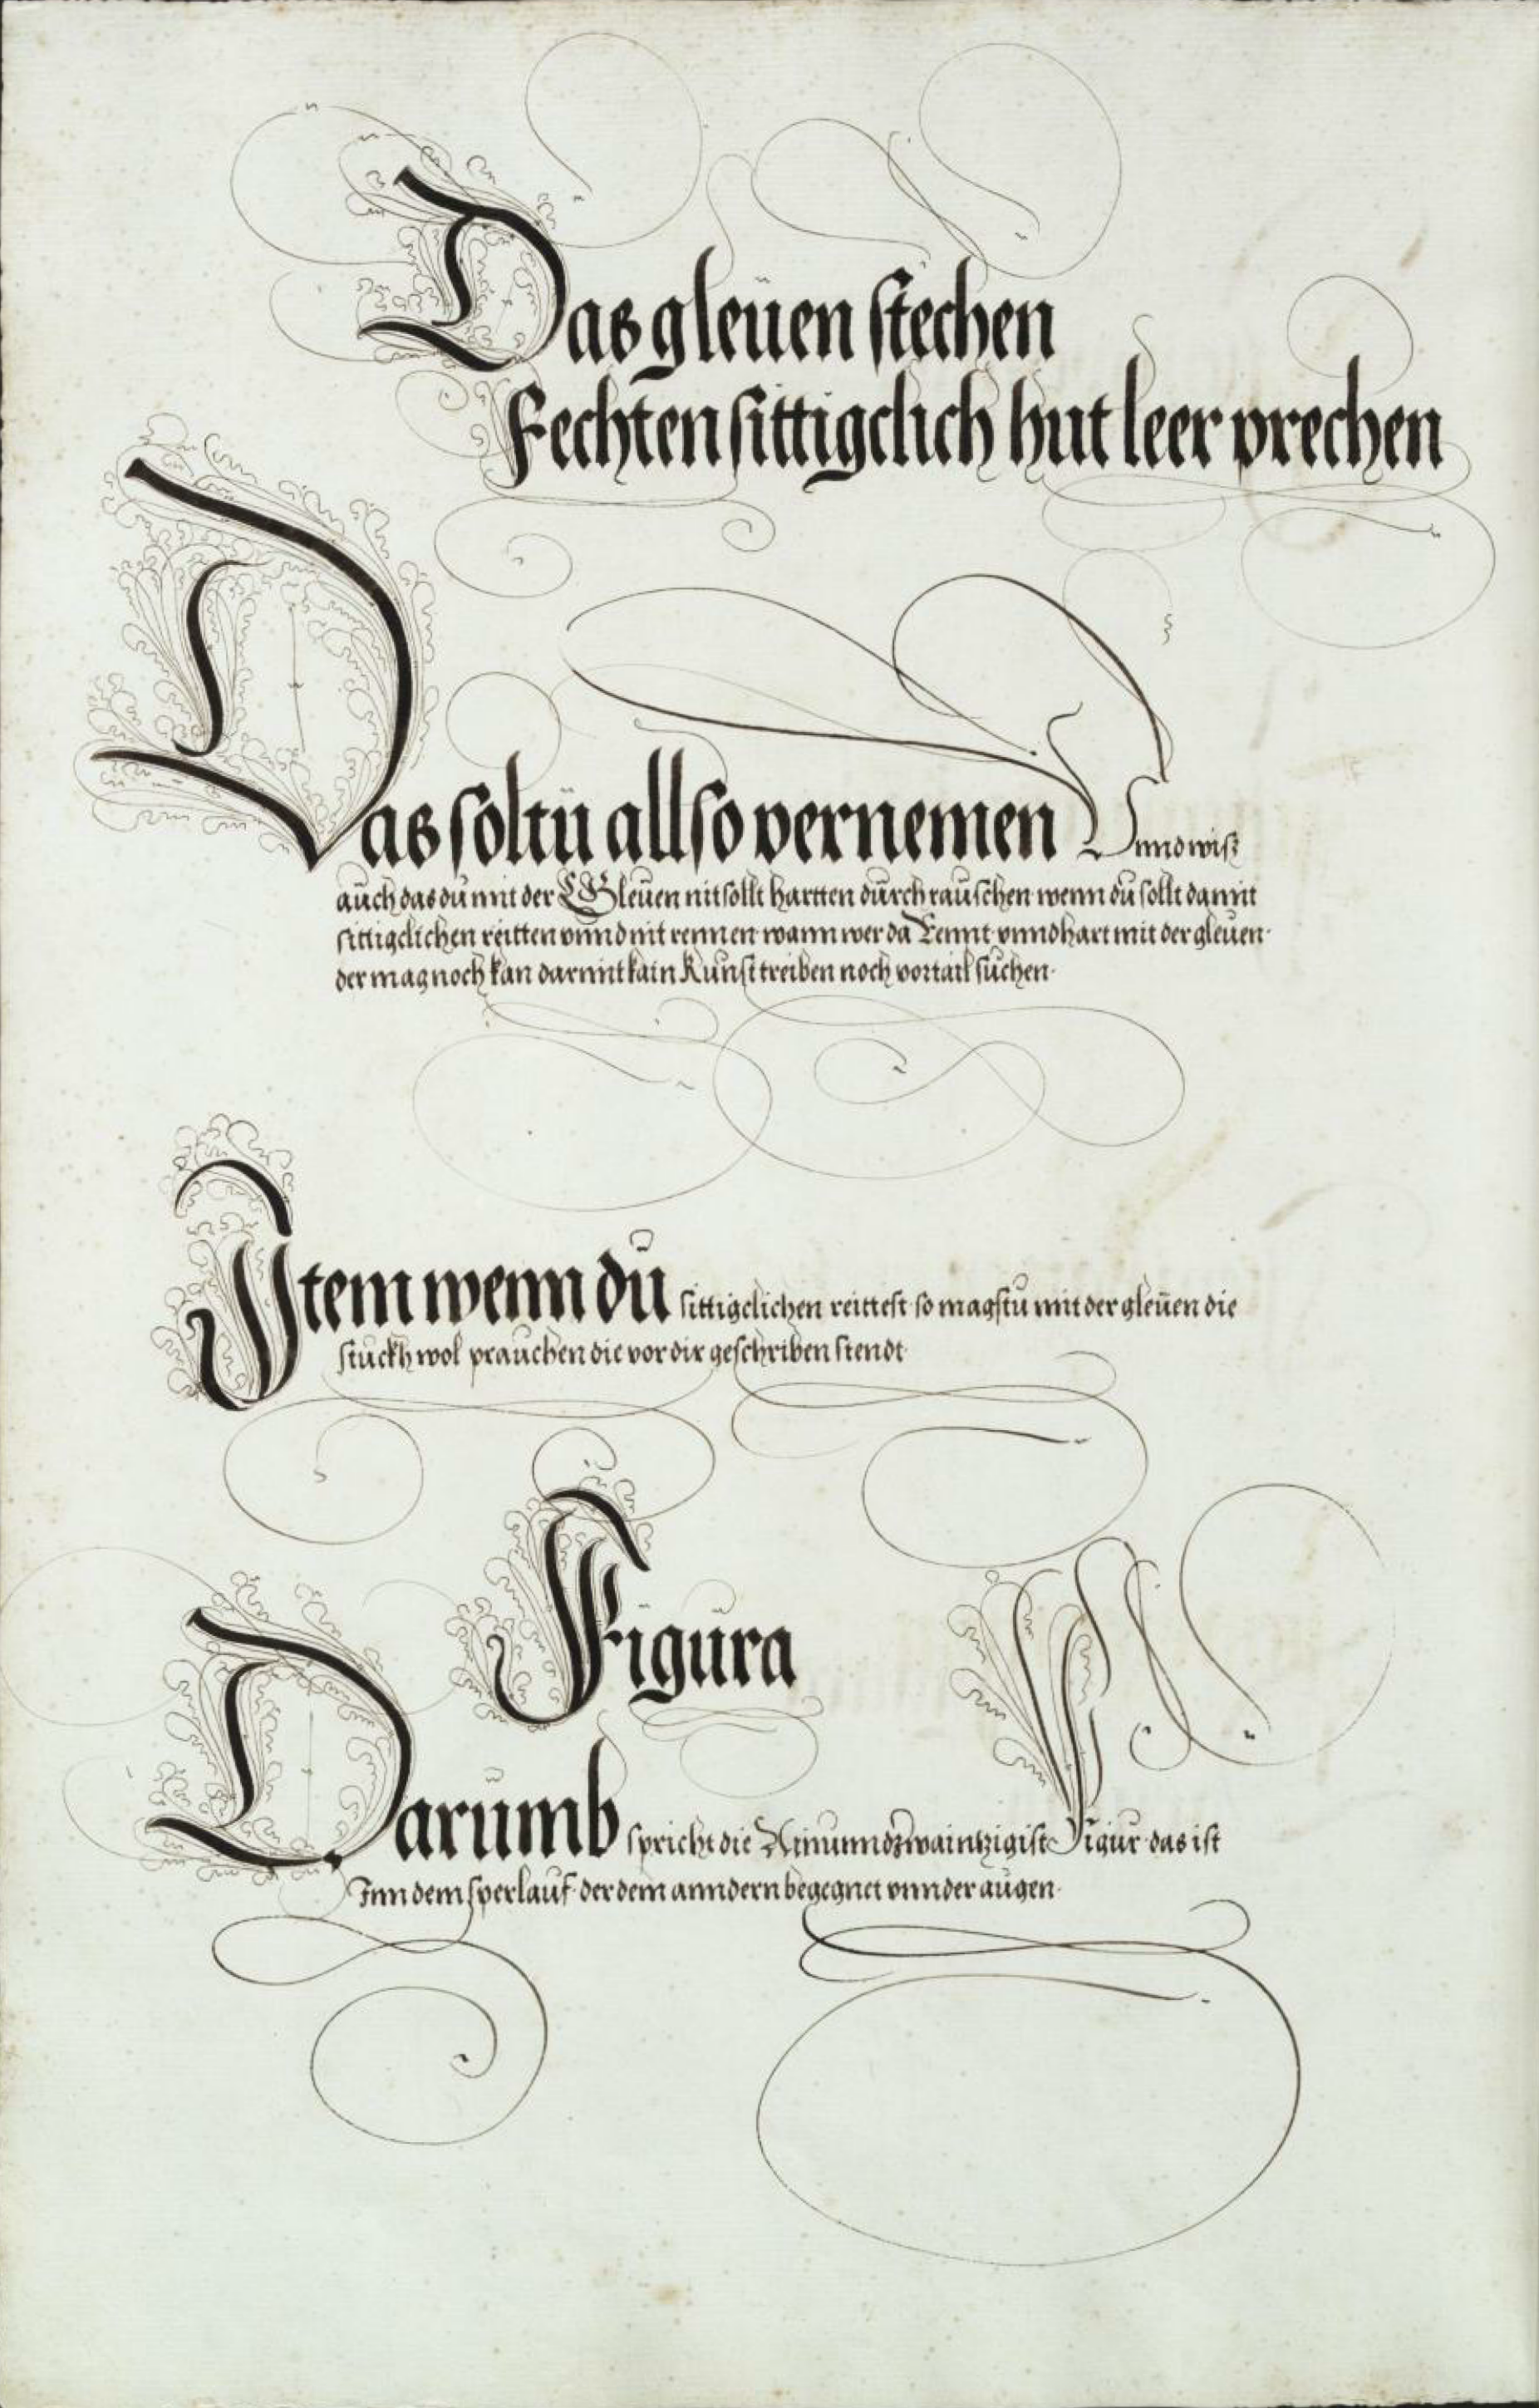 Das gleüen stechen
Fechten sittigclich hut leer prechen
Das soltü allso vernemen Vnnd wiss
aüch das dü mit der Gleüen nit sollt hartten dürch raüschen wenn dü sollt damit
sittigclichen reitten vnnd nit rennen wann wer da Rennt vnnd hart mit der gleüen
der mag noch kan darmit kain Künst treiben noch vortail süchen
Item wenn dü sittigclichen reittest so magstü mit der gleüen die
stückh wol prauchen die vor dir geschriben stendt
Figüra
Darümb spricht die Ainunndzwaintzigist Figur das ist
Inn dem sperlauf der dem anndern begegnet vnnder aügen